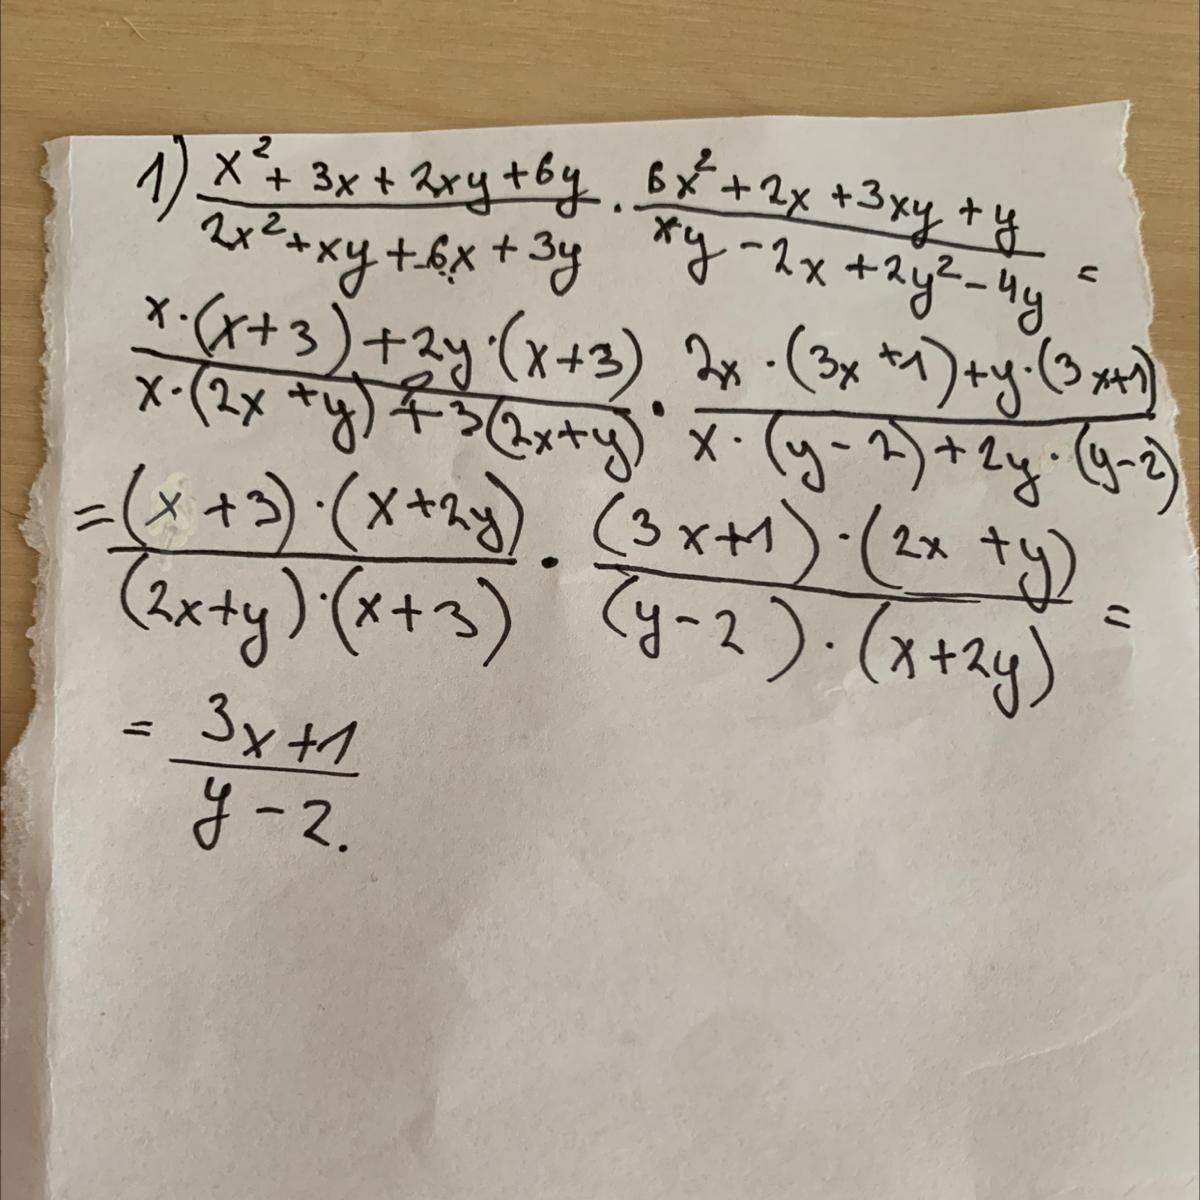 1) (x² + 3x + 2xy + 6y)/(2x² + xy + 6x + 3y) · (6x² + 2x + 3xy + y)/(xy - 2x + 2y² - 4y) =
(x·(x+3) + 2y·(x+3))/(x·(2x+y) + 3(2x+y)) · (2x·(3x+1) + y·(3x+1))/(x·(y-2) + 2y·(y-2))
= ((x+3)·(x+2y))/((2x+y)·(x+3)) · ((3x+1)·(2x+y))/((y-2)·(x+2y)) =
= (3x+1)/(y-2).